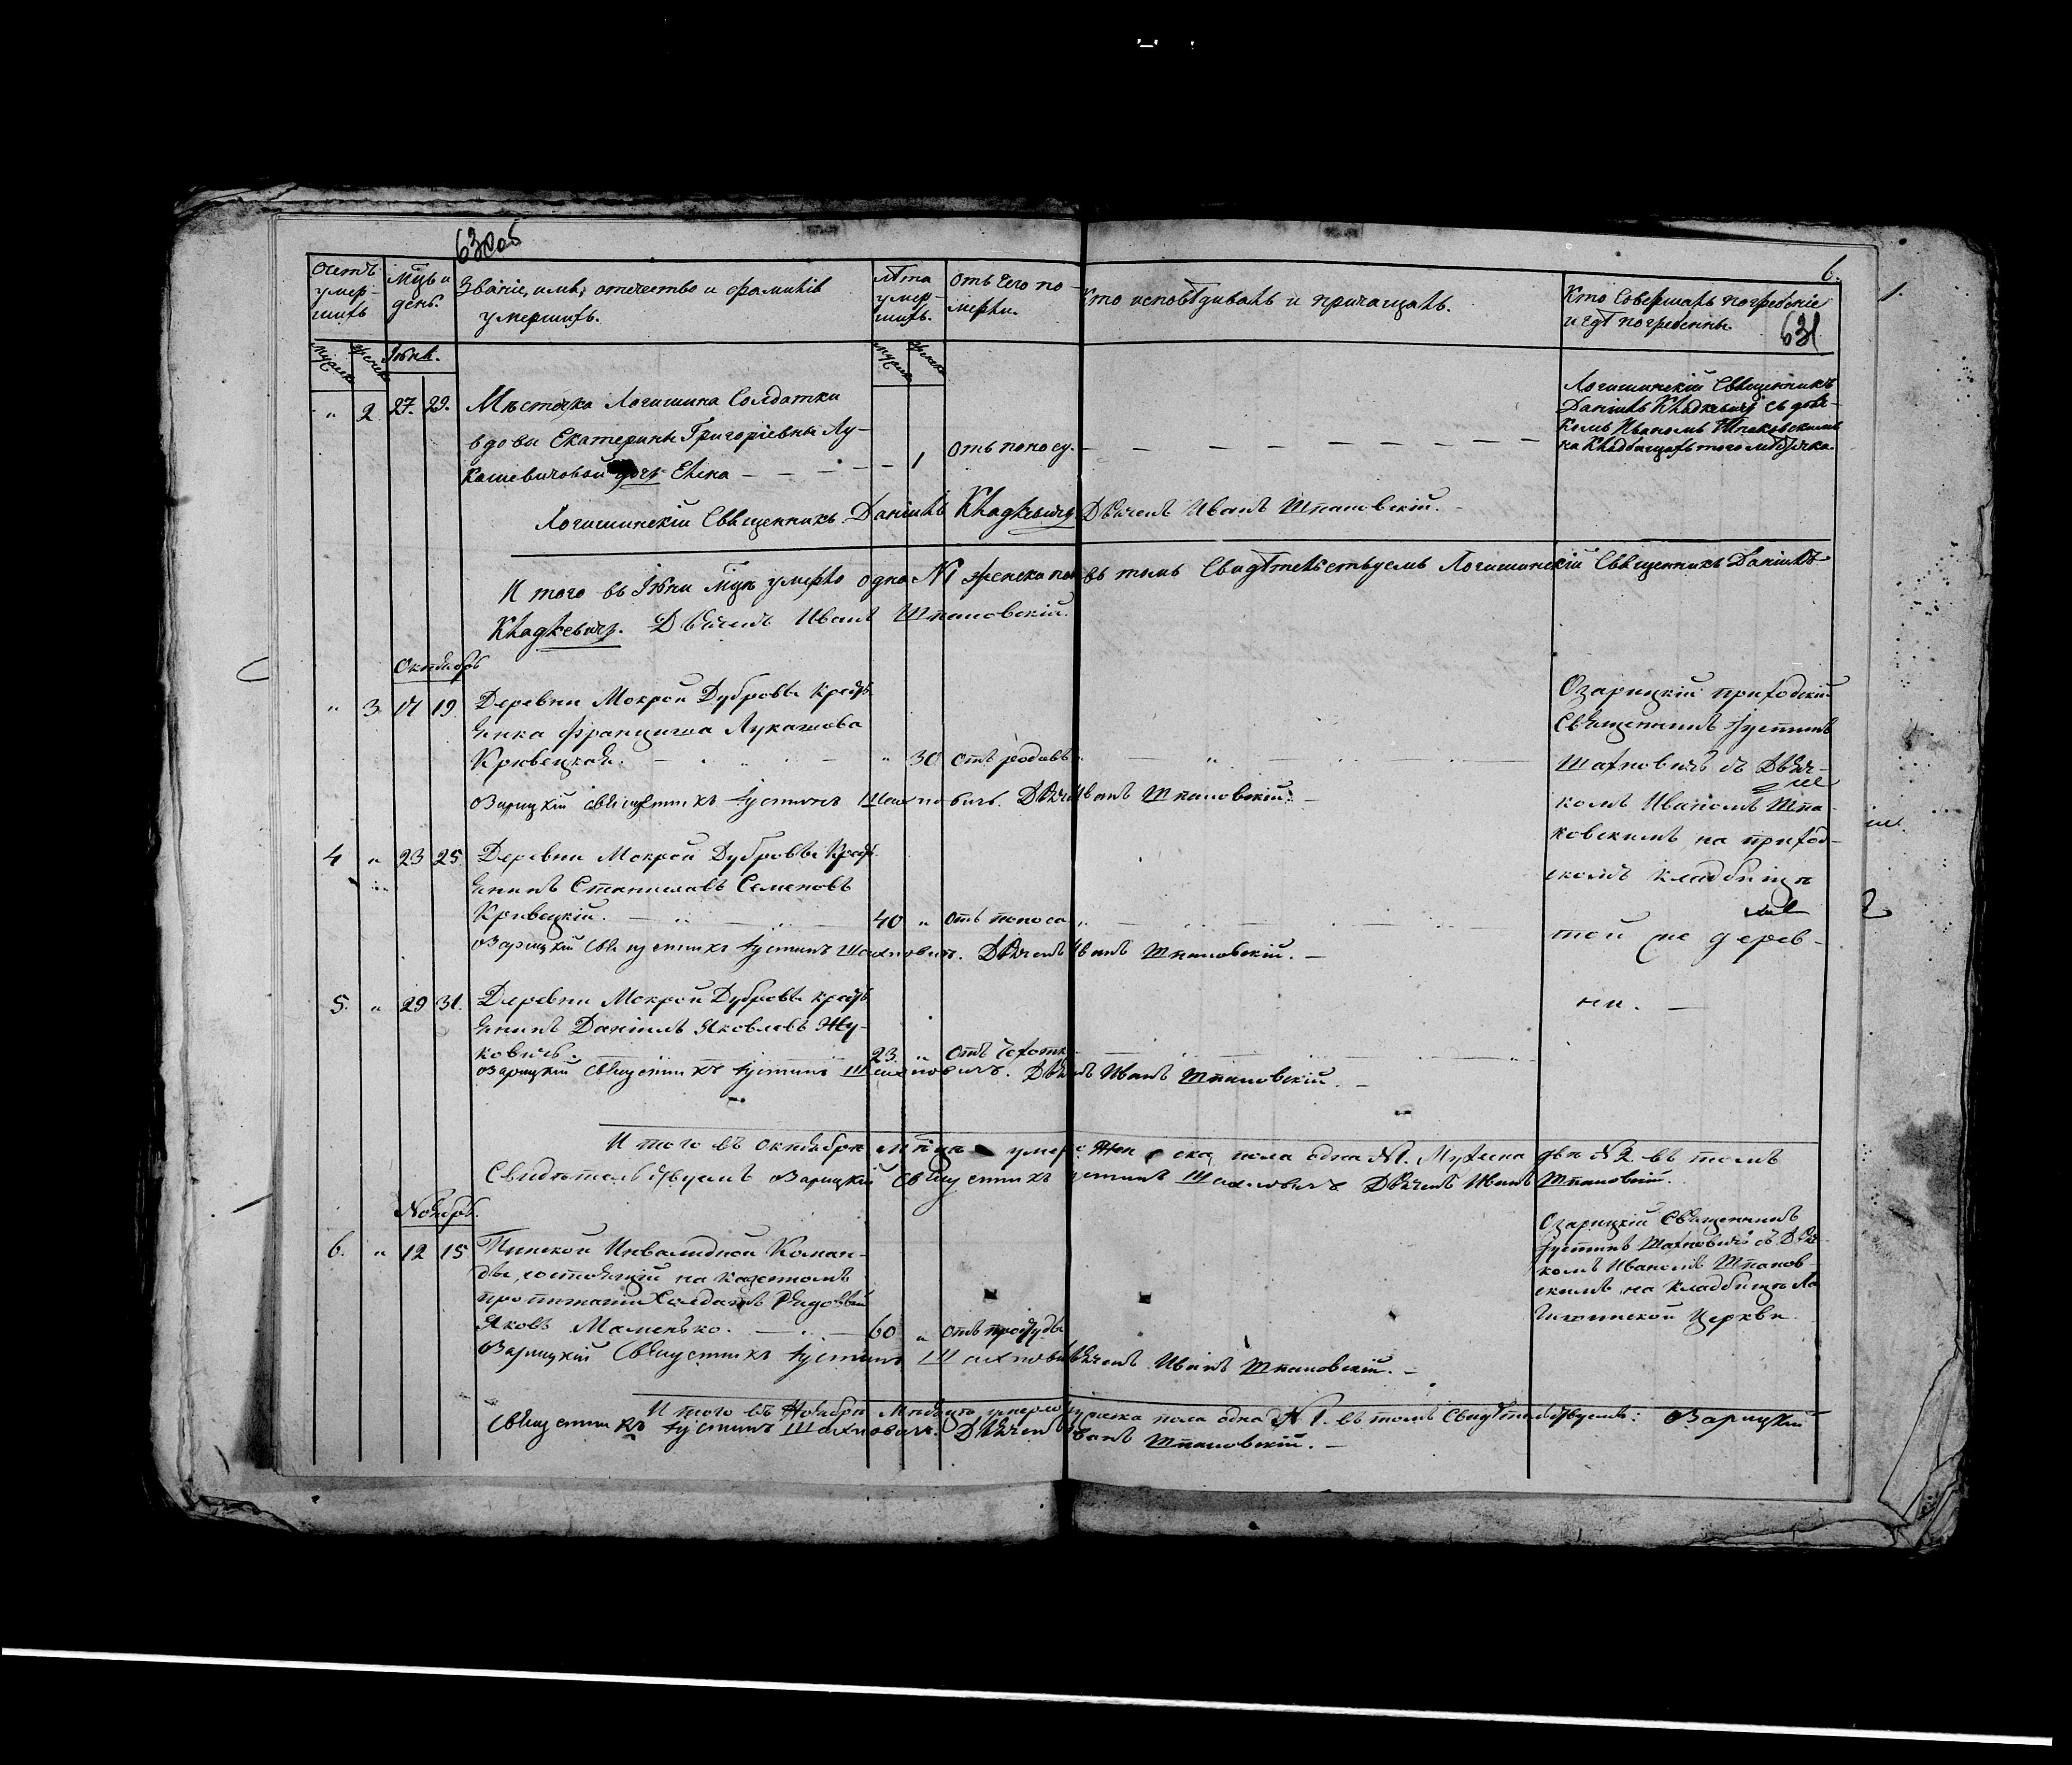 630об
6.
631
Счетъ умер-шихъ
Мцъ и день.
Званіе, имя, отчество и фамилія умершихъ.
Лѣта умер-шихъ.
Отъ чего по-мерли.
Кто исповѣдывалъ и причащалъ.
Кто совершалъ погребеніе и гдѣ погребенны.
" 2 27. 29. Мѣстечка Логишина Солдатки
вдовы Екатерины Григоріевны Лу-
кашевичовой дочь Елена — — — — 1 Отъ поносу. — — — — — — —
Логишинскій Священникъ
Даніилъ Кладкевичъ съ дьяч-
комъ Иваномъ Шпаковскимъ
на Кладбищахъ того мѣстечка.
Логишинскій Священникъ Даніилъ Кладкевичъ Дьячекъ Иванъ Шпаковскій.
И того въ Іюнѣ мцѣ умерло одна №1 женска пола въ томъ Свидѣтельствуемъ Логишинскій Священникъ Даніилъ
Кладкевичъ. Дьячекъ Иванъ Шпаковскій.
Октябрь
" 3 17 19. Деревни Мокрой Дубровы Крестъ
янка Францишка Лукашова
Кривецкая. — " 30 Отъ родовъ.
Озарицкій священникъ Іустинъ Шахновичъ. Дьячекъ Иванъ Шпаковскій. —
Озарицкій приходскій
Священникъ Іустинъ
Шахновичъ съ Дьяч-
комъ Иваномъ Шпа-
ковскимъ на приход-
скомъ кладбищѣ
той же дерев-
ни. —
4 " 23 25 Деревни Мокрой Дубровы Крест
янинъ Станиславъ Семеновъ
Кривецкій. — 40 " Отъ поноса
Озарицкій священникъ Іустинъ Шахновичъ. Дьячекъ Иванъ Шпаковскій. —
5. " 29 31. Деревни Мокрой Дубровы крест
янинъ Даніилъ Яковлевъ Жу-
ковичъ. 23. " Отъ чехотки
Озарицкій священникъ Іустинъ Шахновичъ. Дьячекъ Иванъ Шпаковскій. —
И того въ Октябрѣ мѣсцѣ умерло Женска пола одна №1. Мужеска два №2. въ томъ
Свидѣтельствуемъ Озарицкій Священникъ Іустинъ Шахновичъ Дьячекъ Иванъ Шпаковскій.
Ноябрь.
6. " 12 15 Пинской Инвалидной Коман-
ды, состоящій на казенномъ
пропитаніи Солдатъ Рядовый
Яковъ Маменько. — 60 " Отъ простуды
Озарицкій Священникъ
Іустинъ Шахновичъ съ Дьяч-
комъ Иваномъ Шпаков
скимъ на Кладбищѣ Ло
гишинской Церкви.
Озарицкій Священникъ Іустинъ Шахновичъ Дьячекъ Иванъ Шпаковскій. —
И того въ Ноябрѣ Мѣсяцѣ умерло мужеска пола одна №1. въ томъ Свидѣтельствуемъ: Озарицкій
Священникъ Іустинъ Шахновичъ. Дьячекъ Иванъ Шпаковскій. —